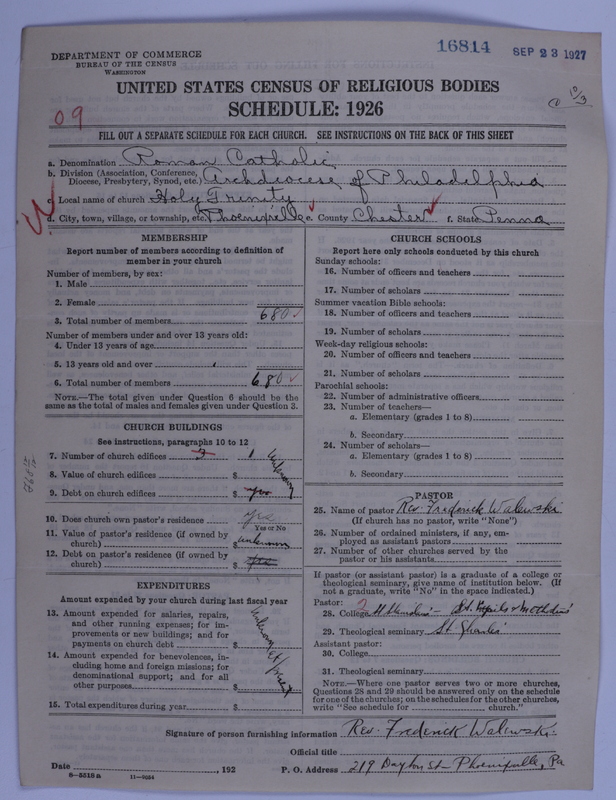 16814 SEP 23 1927
DEPARTMENT OF COMMERCE
BUREAU OF THE CENSUS
WASHINGTON
UNITED STATES CENSUS OF RELIGIOUS BODIES
SCHEDULE: 1926
10/3
09
FILL OUT A SEPARATE SCHEDULE FOR EACH CHURCH. SEE INSTRUCTIONS ON THE BACK OF THIS SHEET
a. Denomination Roman Catholic
b. Division (Association, Conference, Diocese, Presbytery, Synod, etc.) Archdiocese of Philadelphia
c. Local name of church Holy Trinity
d. City, town, village, or township, etc. Phoenixville e. County Chester f. State Penna
MEMBERSHIP
Report number of members according to definition of
member in your church
Number of members, by sex:
1. Male
2. Female
3. Total number of members 680
Number of members under and over 13 years old:
4. Under 13 years of age
5. 13 years old and over
6. Total number of members 680
NOTE.—The total given under Question 6 should be
same as the total of males and females given under Question 3.
CHURCH BUILDINGS
See instructions, paragraphs 10 to 12
7. Number of church edifices 1
8. Value of church edifices $ unknown
9. Debt on church edifices $ yes
10. Does church own pastor's residence yes
Yes or No
11. Value of pastor's residence (if owned by
church) $ unknown
12. Debt on pastor's residence (if owned by
church) $
EXPENDITURES
Amount expended by your church during last fiscal year
13. Amount expended for salaries, repairs,
and other running expenses; for im-
provements or new buildings; and for
payments on church debt $
14. Amount expended for benevolences, in-
cluding home and foreign missions; for
denominational support; and for all
other purposes $
15. Total expenditures during year $
CHURCH SCHOOLS
Report here only schools conducted by this church
Sunday schools:
16. Number of officers and teachers
17. Number of scholars
Summer vacation Bible schools:
18. Number of officers and teachers
19. Number of scholars
Week-day religious schools:
20. Number of officers and teachers
21. Number of scholars
Parochial schools:
22. Number of administrative officers
23. Number of teachers—
a. Elementary (grades 1 to 8)
b. Secondary
24. Number of scholars—
a. Elementary (grades 1 to 8)
b. Secondary
PASTOR
25. Name of pastor Rev. Frederick Walewski
(If church has no pastor, write "None")
26. Number of ordained ministers, if any, em-
ployed as assistant pastors
27. Number of other churches served by the
pastor or his assistants
If pastor (or assistant pastor) is a graduate of a college or
theological seminary, give name of institution below. (If
not a graduate, write "No" in the space indicated.)
Pastor:
28. College
29. Theological seminary St. Charles
Assistant pastor:
30. College
31. Theological seminary
NOTE.—Where one pastor serves two or more churches,
Questions 28 and 29 should be answered only on the schedule
for one of the churches; on the schedules for the other churches,
write "See schedule for church."
Signature of person furnishing information Rev. Frederick Walewski
Official title
Date , 192 P. O. Address 219 Dayton St. Phoenixville, Pa
8—5518a 11—9034